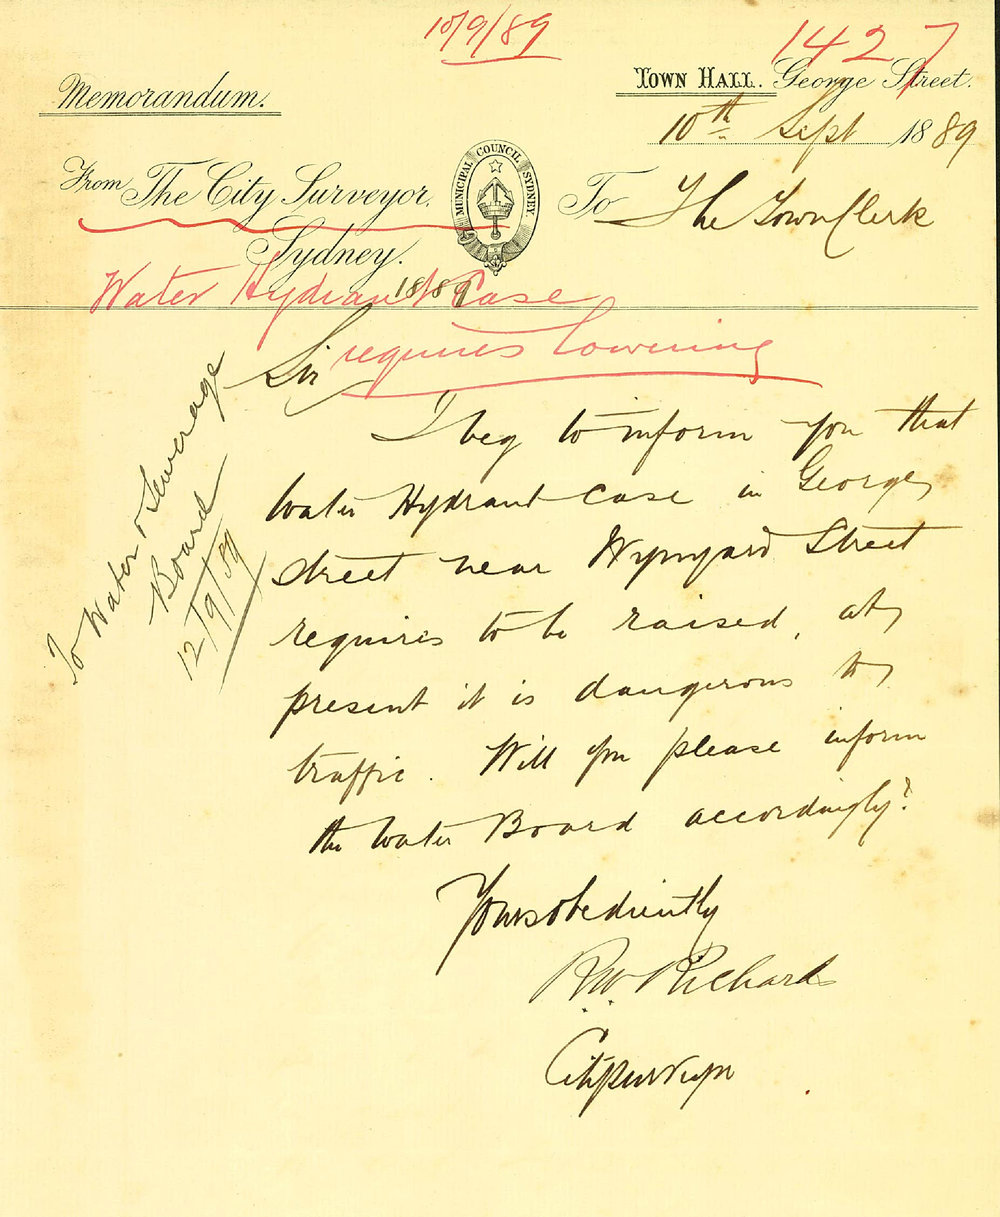 10/9/89
1427
Memorandum.
TOWN HALL. George Street.
10th Sept 1889
From The City Surveyor,
MUNICIPAL COUNCIL SYDNEY
To The Town Clerk
Sydney.
Water Hydrant Case
1889
requires lowering
Sir
I beg to inform you that
Water Hydrant case in George
street near Wynyard Street
requires to be raised, at
present it is dangerous to
traffic. Will you please inform
the Water Board accordingly?
Yours obediently
R.W. Richards
City Surveyor
To Water & Sewerage
Board
12/9/89